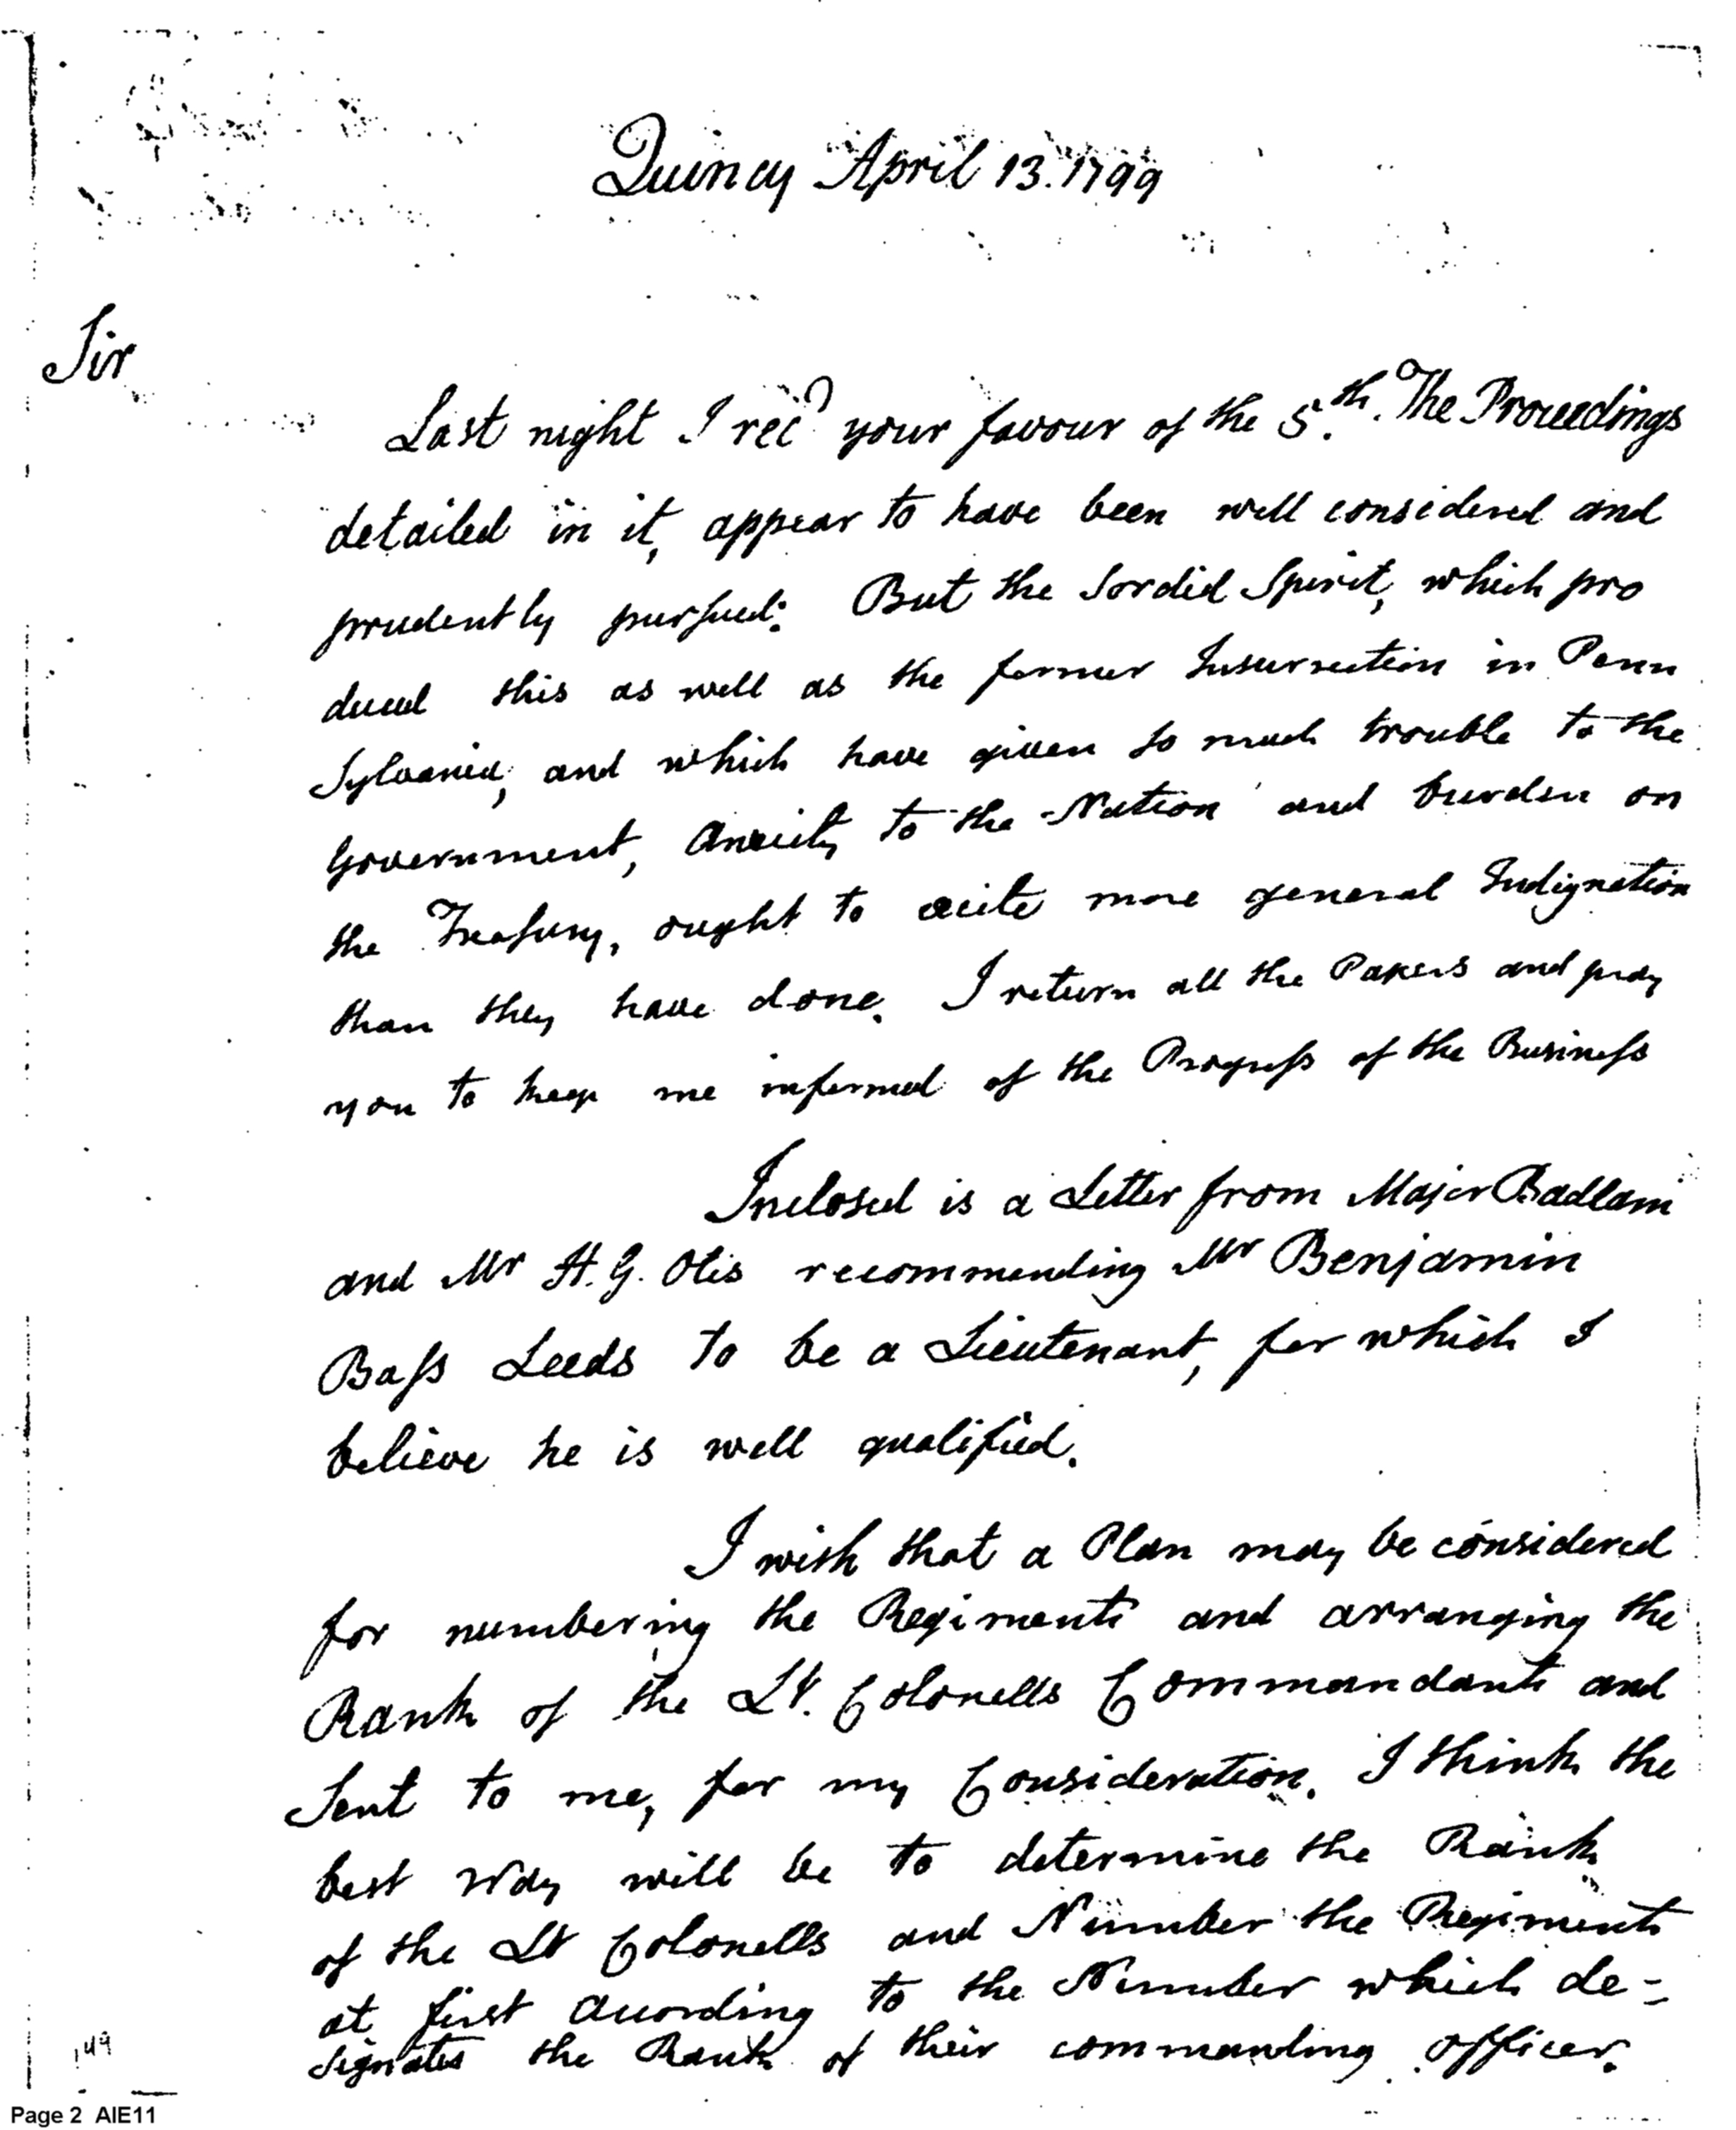 Quincy April 13. 1799
Sir
Last night I recd your favour of the 5.th. The Proceedings
detailed in it, appear to have been well considered and
prudently pursued: But the sordid Spirit, which pro
duced this as well as the former Insurrection in Penn
Sylvania, and which have given so much trouble to the
Government, Anxiety to the Nation and burden on
the Treasury, ought to excite more general Indignation
than they have done. I return all the Papers and pray
you to keep me informed of the Progress of the Business
Inclosed is a Letter from Major Badlam
and Mr H. G. Otis recommending Mr Benjamin
Bass Leeds to be a Lieutenant, for which I
believe he is well qualified.
I wish that a Plan may be considered
for numbering the Regiments and arranging the
Rank of the Lt. Colonells Commandants and
Sent to me, for my Consideration. I think the
best Way will be to determine the Rank
of the Lt Colonells and Number the Regiments
at first according to the Number which de=
signates the Rank of their commanding officer.
149
Page 2 AIE11